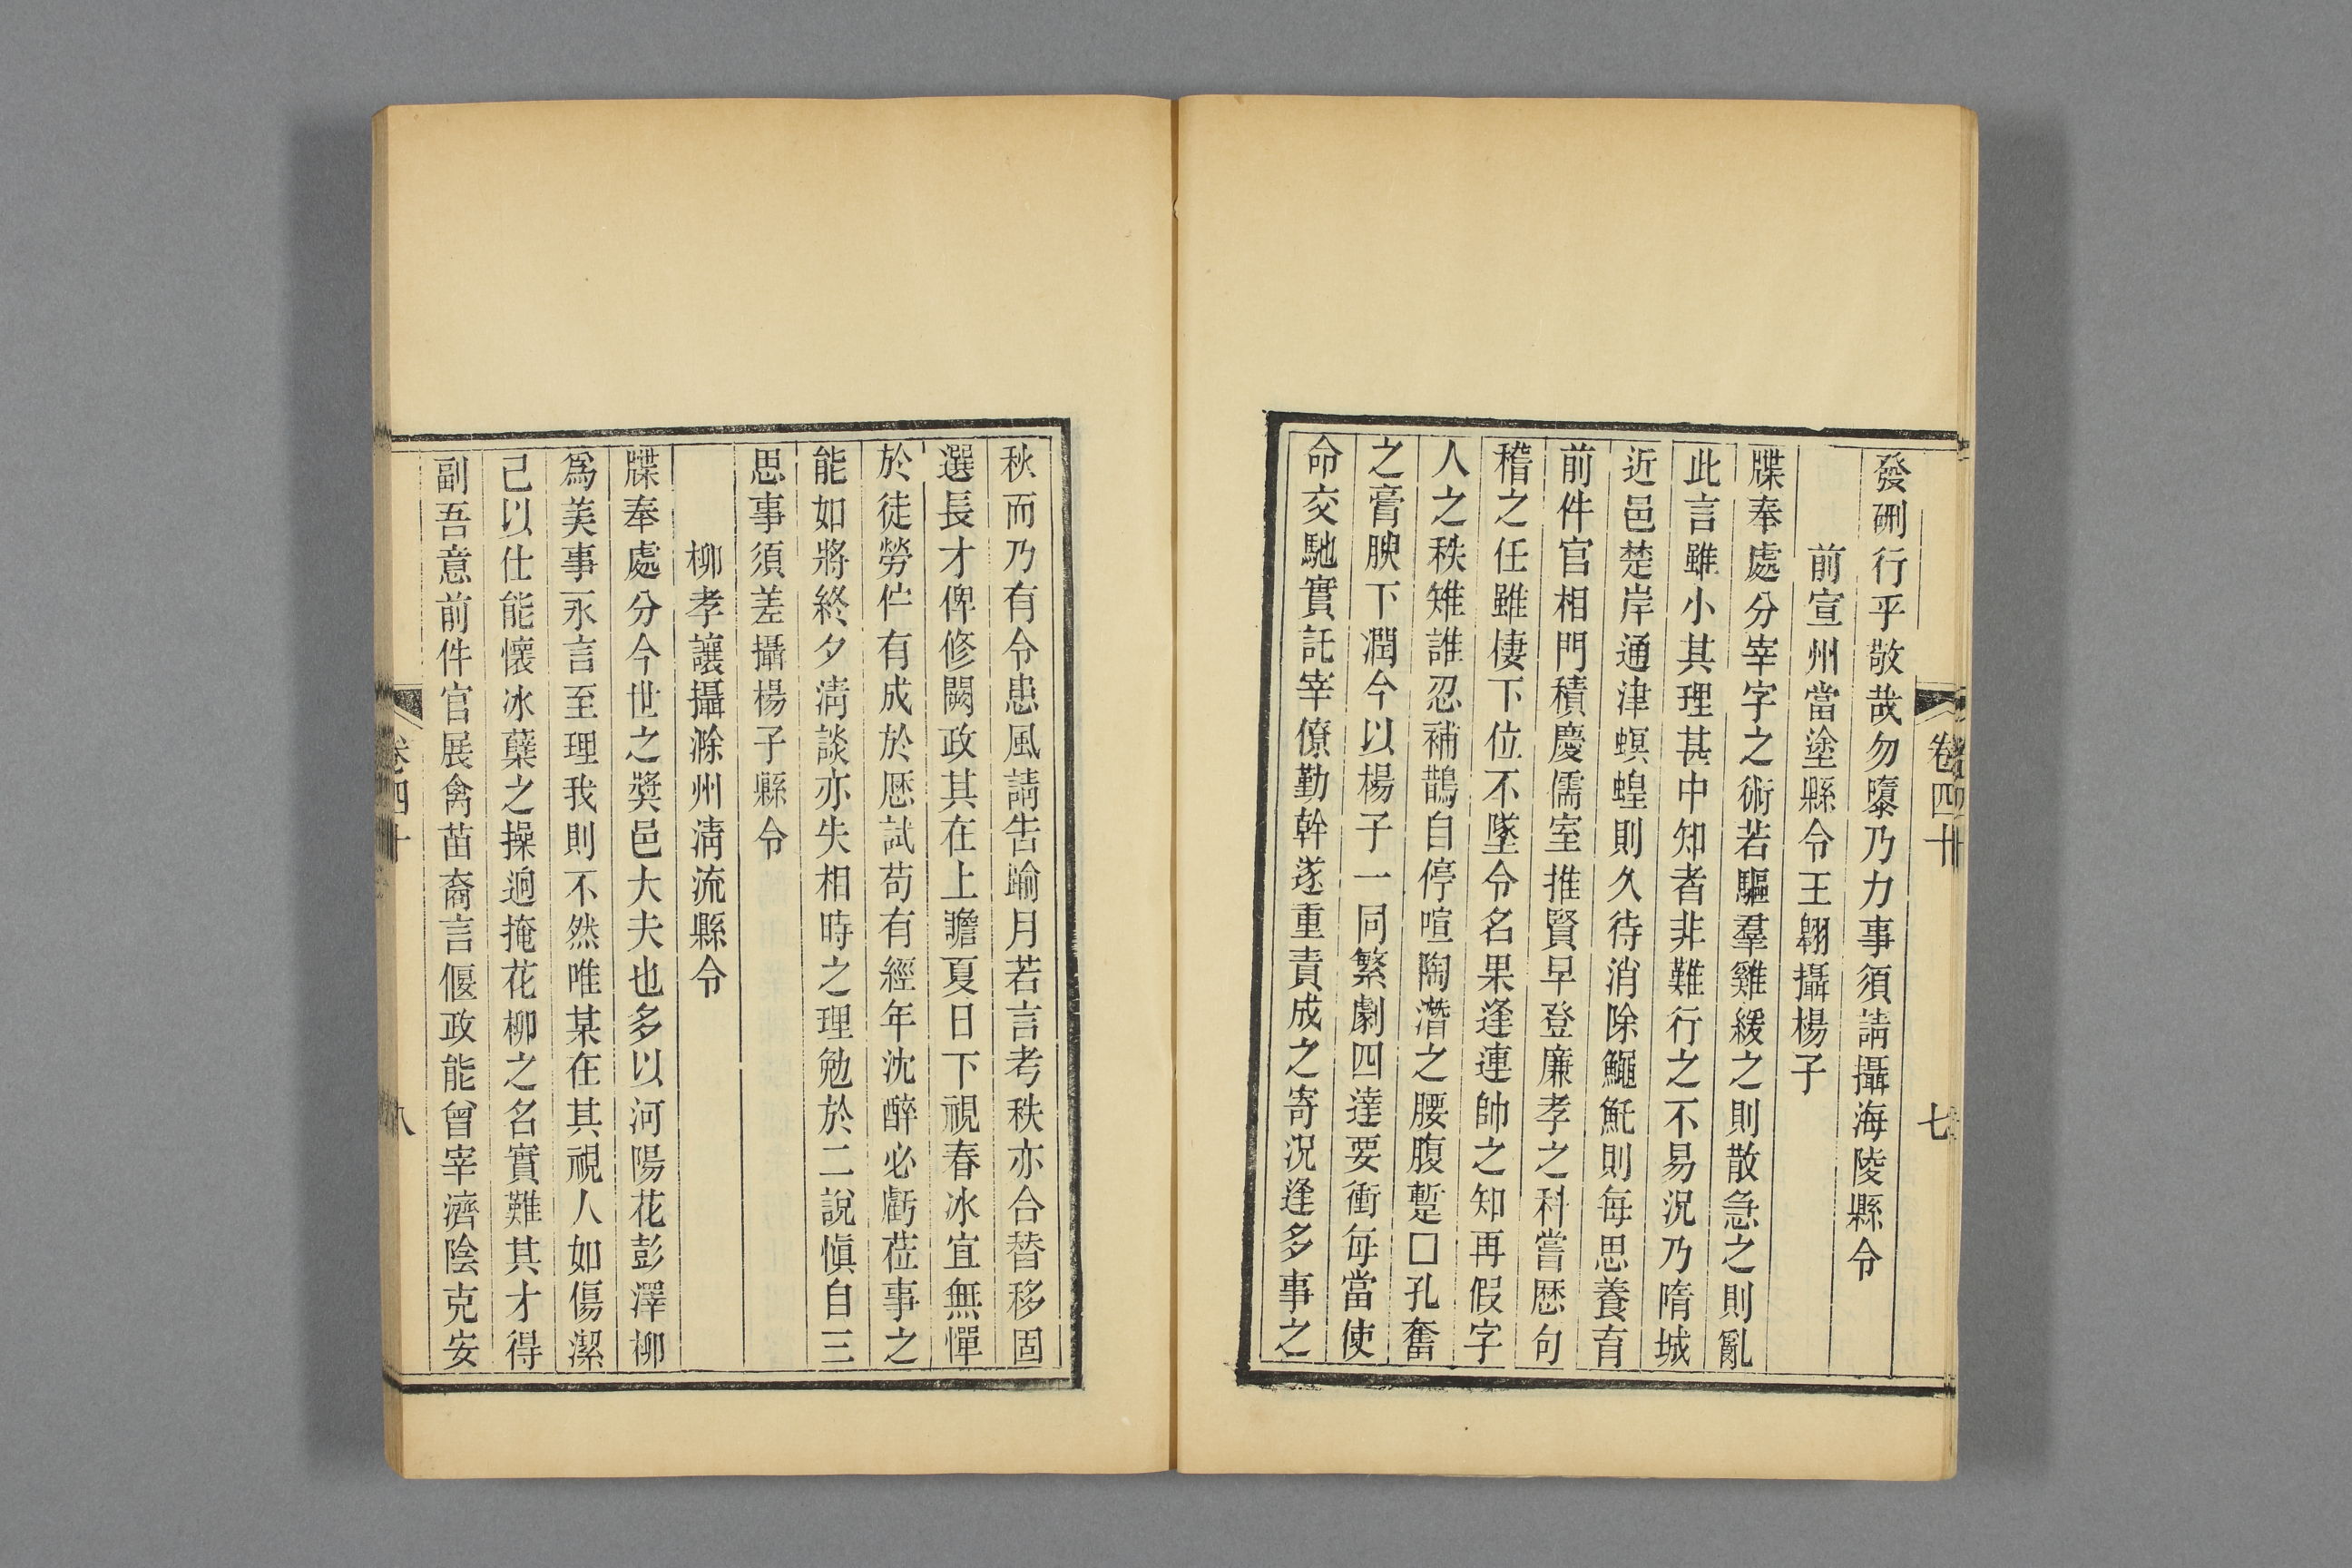 卷四十
七
發硎行乎敬哉勿隳乃力事須請攝海陵縣令
前宣州當塗縣令王翺攝楊子
牒奉處分宰字之術若驅羣雞緩之則散急之則亂
此言雖小其理甚中知者非難行之不易況乃隋城
近邑楚岸通津螟蝗則久待消除鰮魠則每思養育
前件官相門積慶儒室推賢早登廉孝之科嘗歷句
稽之任雖棲下位不墜令名果逢連帥之知再假字
人之秩雉誰忍補鵲自停喧陶潛之腰腹蹔□孔奮
之膏腴下潤今以楊子一同繁劇四達要衝每當使
命交馳實託宰僚勤幹遂重責成之寄況逢多事之
秋而乃有令患風請告踰月若言考秩亦合替移固
選長才俾修闕政其在上瞻夏日下視春冰宜無憚
於徒勞佇有成於歷試苟有經年沈醉必虧莅事之
能如將終夕淸談亦失相時之理勉於二說愼自三
思事須差攝楊子縣令
柳孝讓攝滁州淸流縣令
牒奉處分今世之奬邑大夫也多以河陽花彭澤柳
爲美事永言至理我則不然唯某在其視人如傷潔
己以仕能懷冰蘗之操逈掩花柳之名實難其才得
副吾意前件官展禽苗裔言偃政能曾宰濟陰克安
卷四十
八